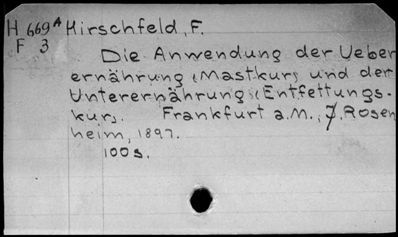 H 669A Hirschfeld, F.
F 3
Die Anwendung der Ueber
ernährung (Mastkur) und der
Unterernährung (Entfettungs-
kur). Frankfurt a.M., J. Rosen
heim, 1897.
100 s.